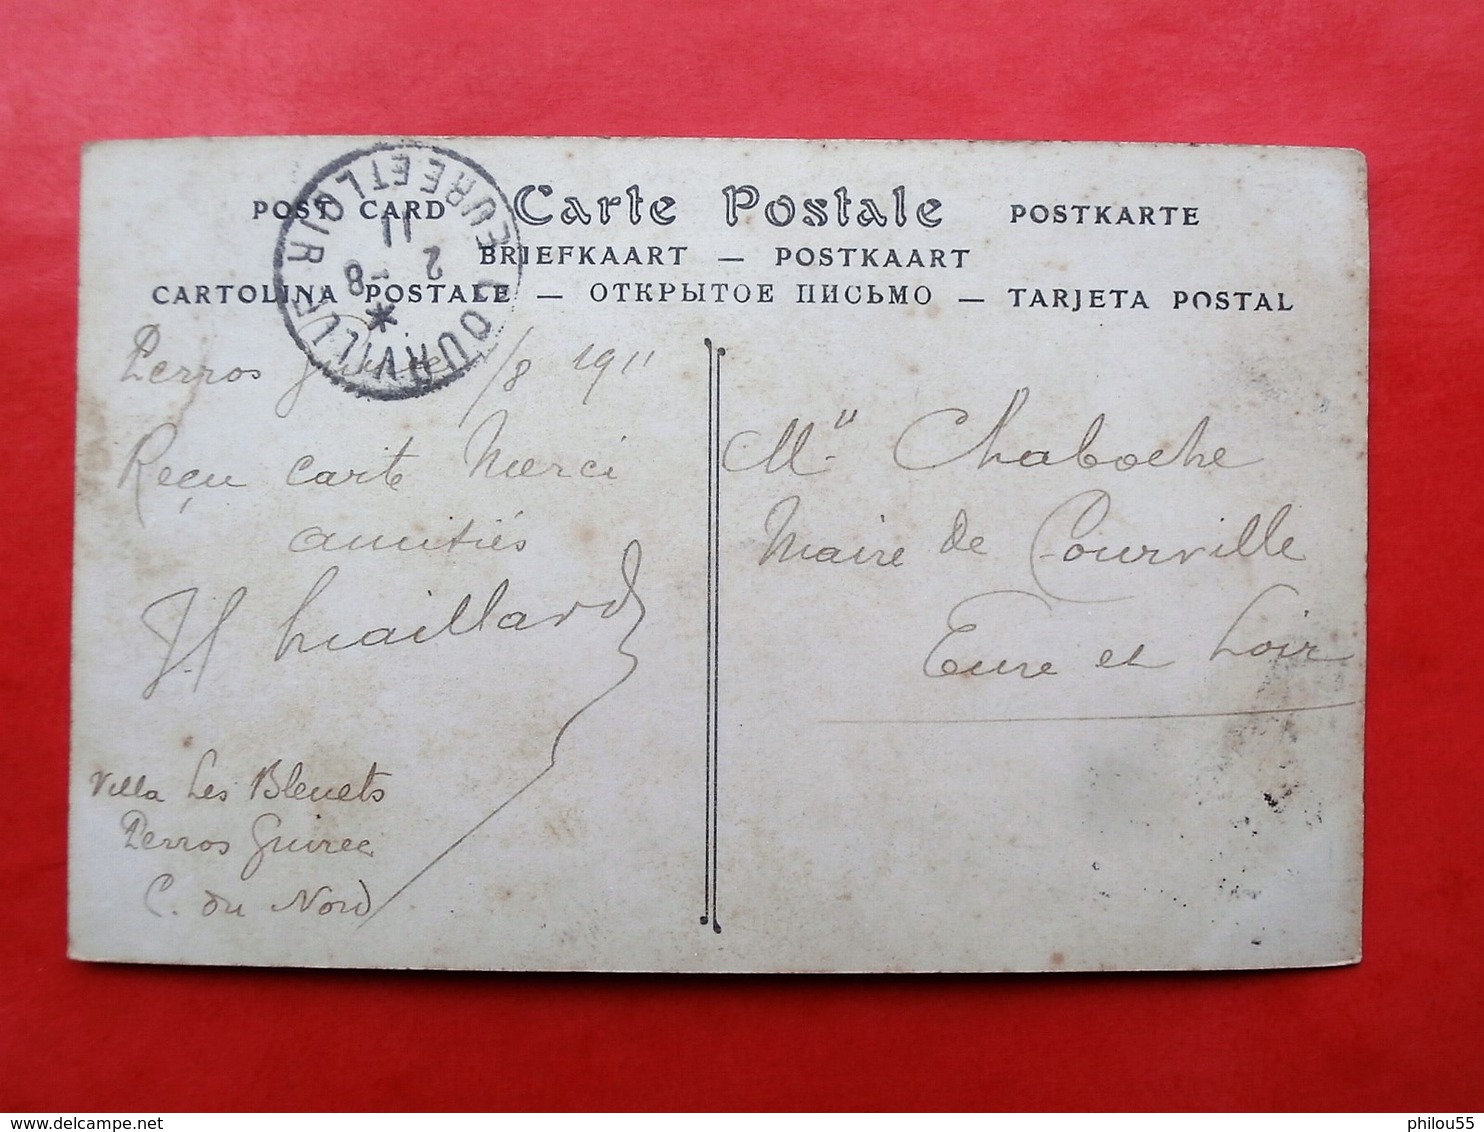 POST CARD Carte Postale POSTKARTE
BRIEFKAART — POSTKAART
CARTOLINA POSTALE — ОТКРЫТОЕ ПИСЬМО — TARJETA POSTAL
COURVILLE EURE ET LOIR
2 - 8
11
Perros /8 1911
Reçu carte Merci
amitiés
Maillard
Villa Les Bleuets
Perros Guirec
C. du Nord
Chaboche
Maire de Courville
Eure et Loir
delcampe.net
philou55